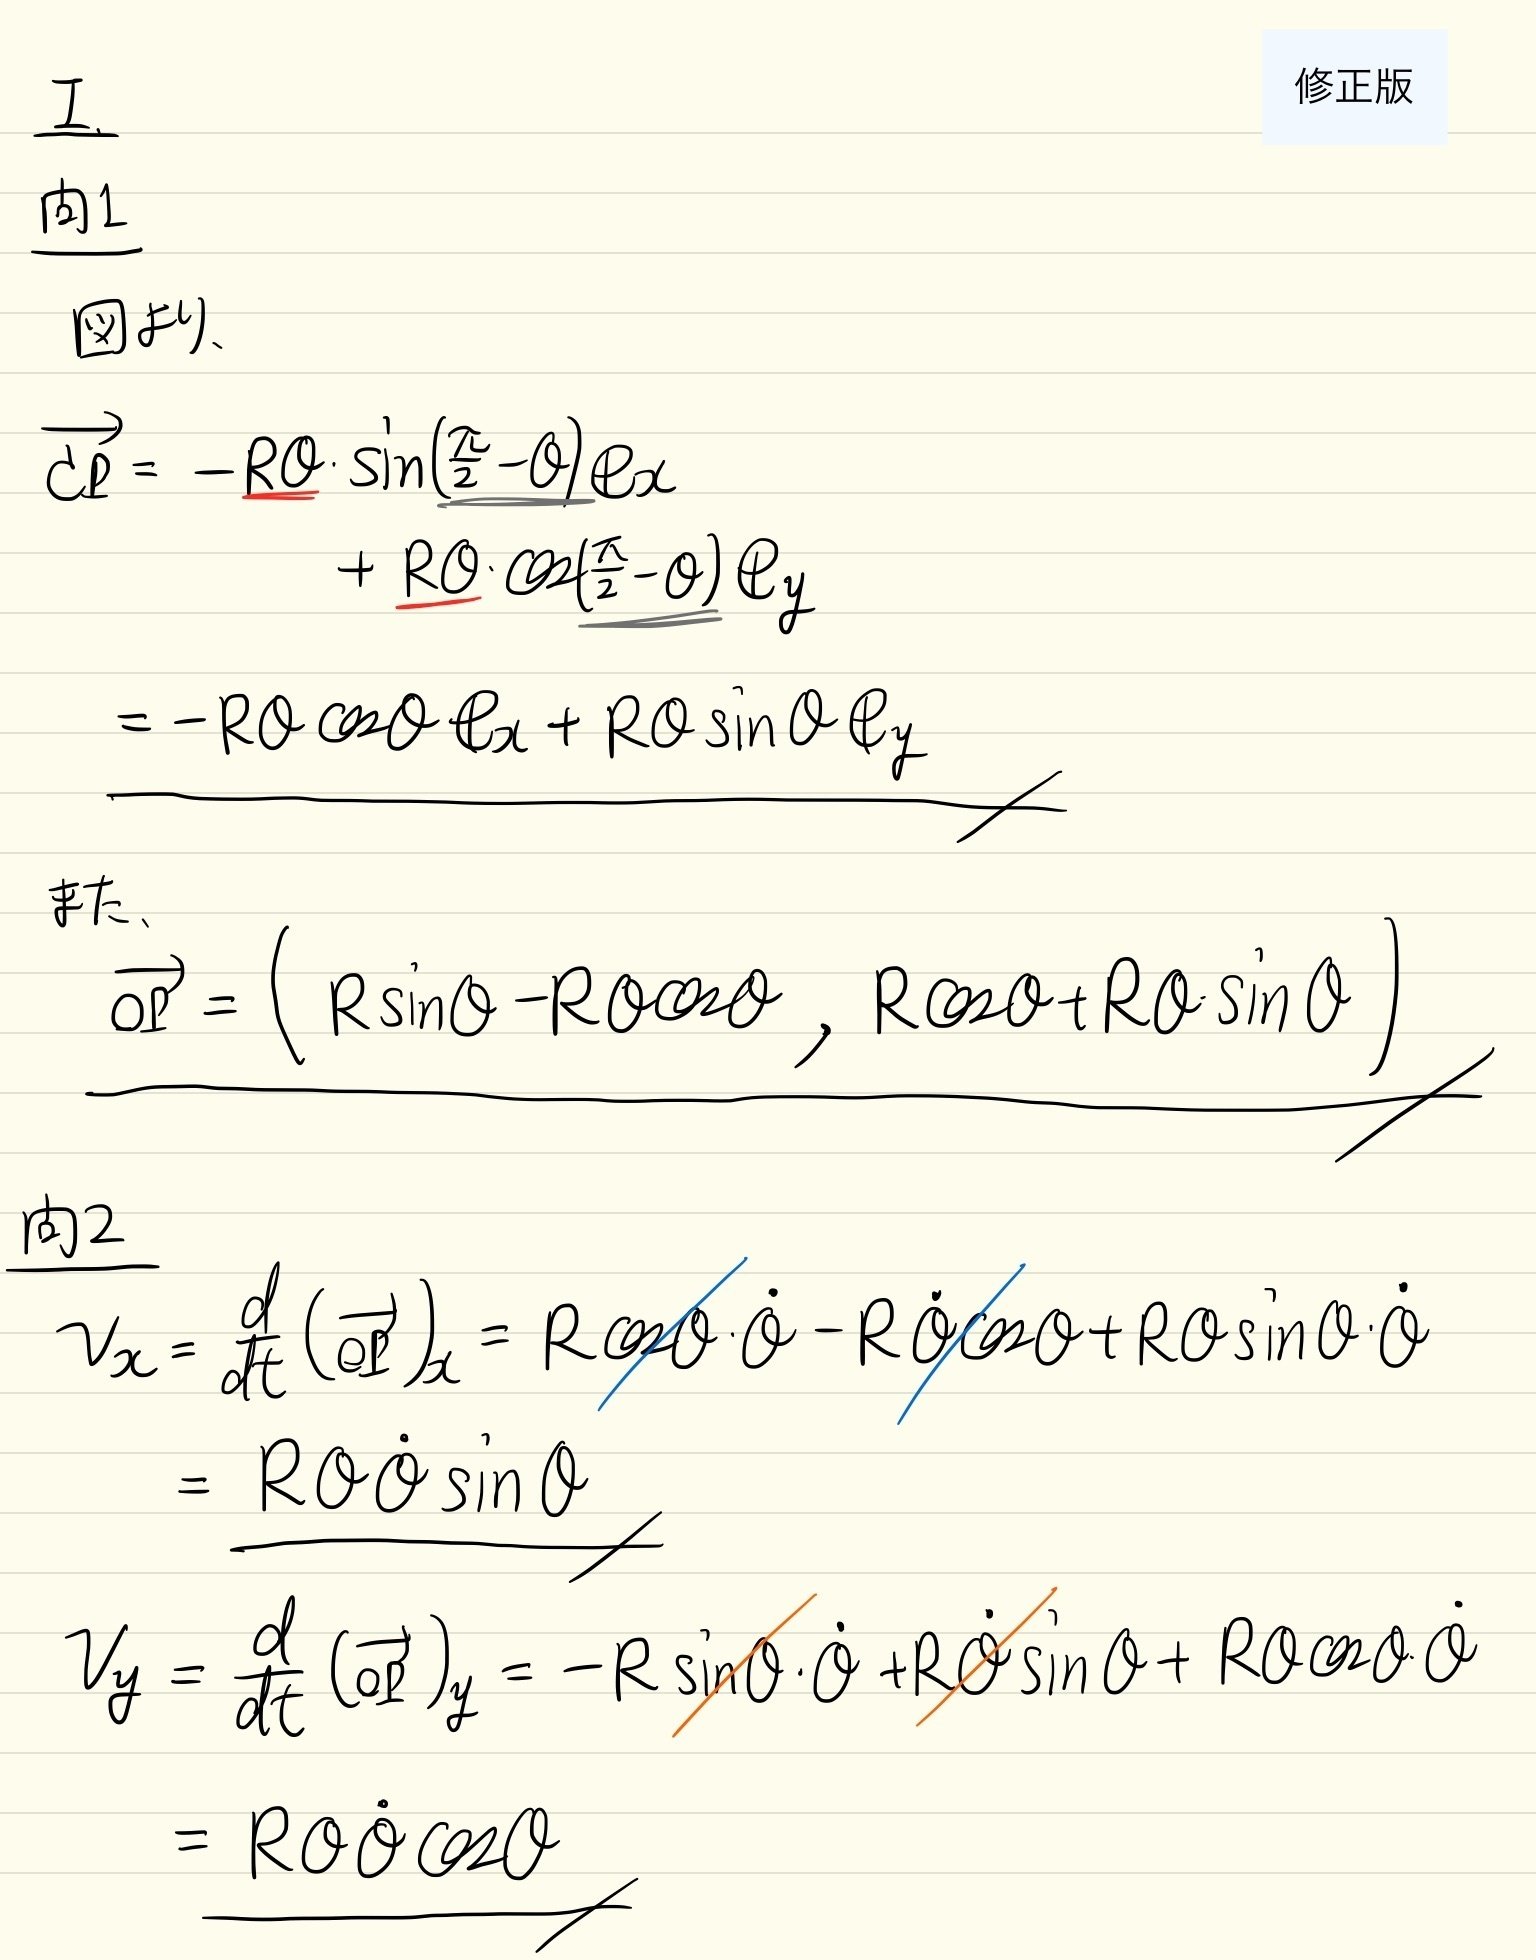 修正版
I.
問1
図より、
$\overrightarrow{CP} = -R\theta \cdot \sin(\frac{\pi}{2} - \theta) e_x$
$+ R\theta \cdot \cos(\frac{\pi}{2} - \theta) e_y$
$= -R\theta \cos\theta e_x + R\theta \sin\theta e_y$
また、
$\overrightarrow{OP} = (R\sin\theta - R\theta\cos\theta, R\cos\theta + R\theta \cdot \sin\theta)$
問2
$v_x = \frac{d}{dt}(\overrightarrow{OP})_x = R\cos\theta \cdot \dot{\theta} - R\dot{\theta}\cos\theta + R\theta\sin\theta \cdot \dot{\theta}$
$= R\theta\dot{\theta}\sin\theta$
$v_y = \frac{d}{dt}(\overrightarrow{OP})_y = -R\sin\theta \cdot \dot{\theta} + R\dot{\theta}\sin\theta + R\theta\cos\theta \cdot \dot{\theta}$
$= R\theta\dot{\theta}\cos\theta$